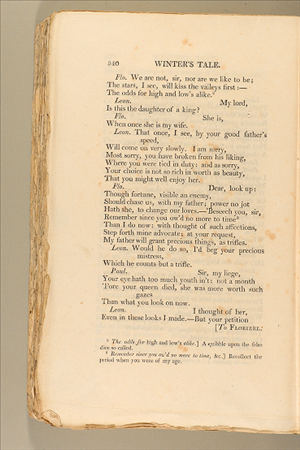 540 WINTER'S TALE.
Flo. We are not, sir, nor are we like to be;
The stars, I see, will kiss the valleys first:—
The odds for high and low's alike.²
Leon. My lord,
Is this the daughter of a king?
Flo. She is,
When once she is my wife.
Leon. That once, I see, by your good father's
speed,
Will come on very slowly. I am sorry,
Most sorry, you have broken from his liking,
Where you were tied in duty: and as sorry,
Your choice is not so rich in worth as beauty,
That you might well enjoy her.
Flo. Dear, look up:
Though fortune, visible an enemy,
Should chase us, with my father; power no jot
Hath she, to change our loves.—'Beseech you, sir,
Remember since you ow'd no more to time³
Than I do now: with thought of such affections,
Step forth mine advocate; at your request,
My father will grant precious things, as trifles.
Leon. Would he do so, I'd beg your precious
mistress,
Which he counts but a trifle.
Paul. Sir, my liege,
Your eye hath too much youth in't: not a month
'Fore your queen died, she was more worth such
gazes
Than what you look on now.
Leon. I thought of her,
Even in these looks I made.—But your petition
[To FLORIZEL.
² The odds for high and low's alike.] A quibble upon the false
dice so called.
³ Remember since you ow'd no more to time, &c.] Recollect the
period when you were of my age.